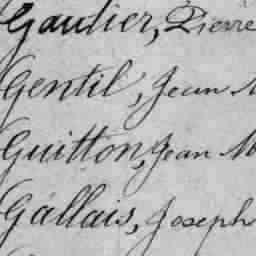 Gautier, Pierre
Gentil, Jean M
Guitton, Jean M
Gallais, Joseph